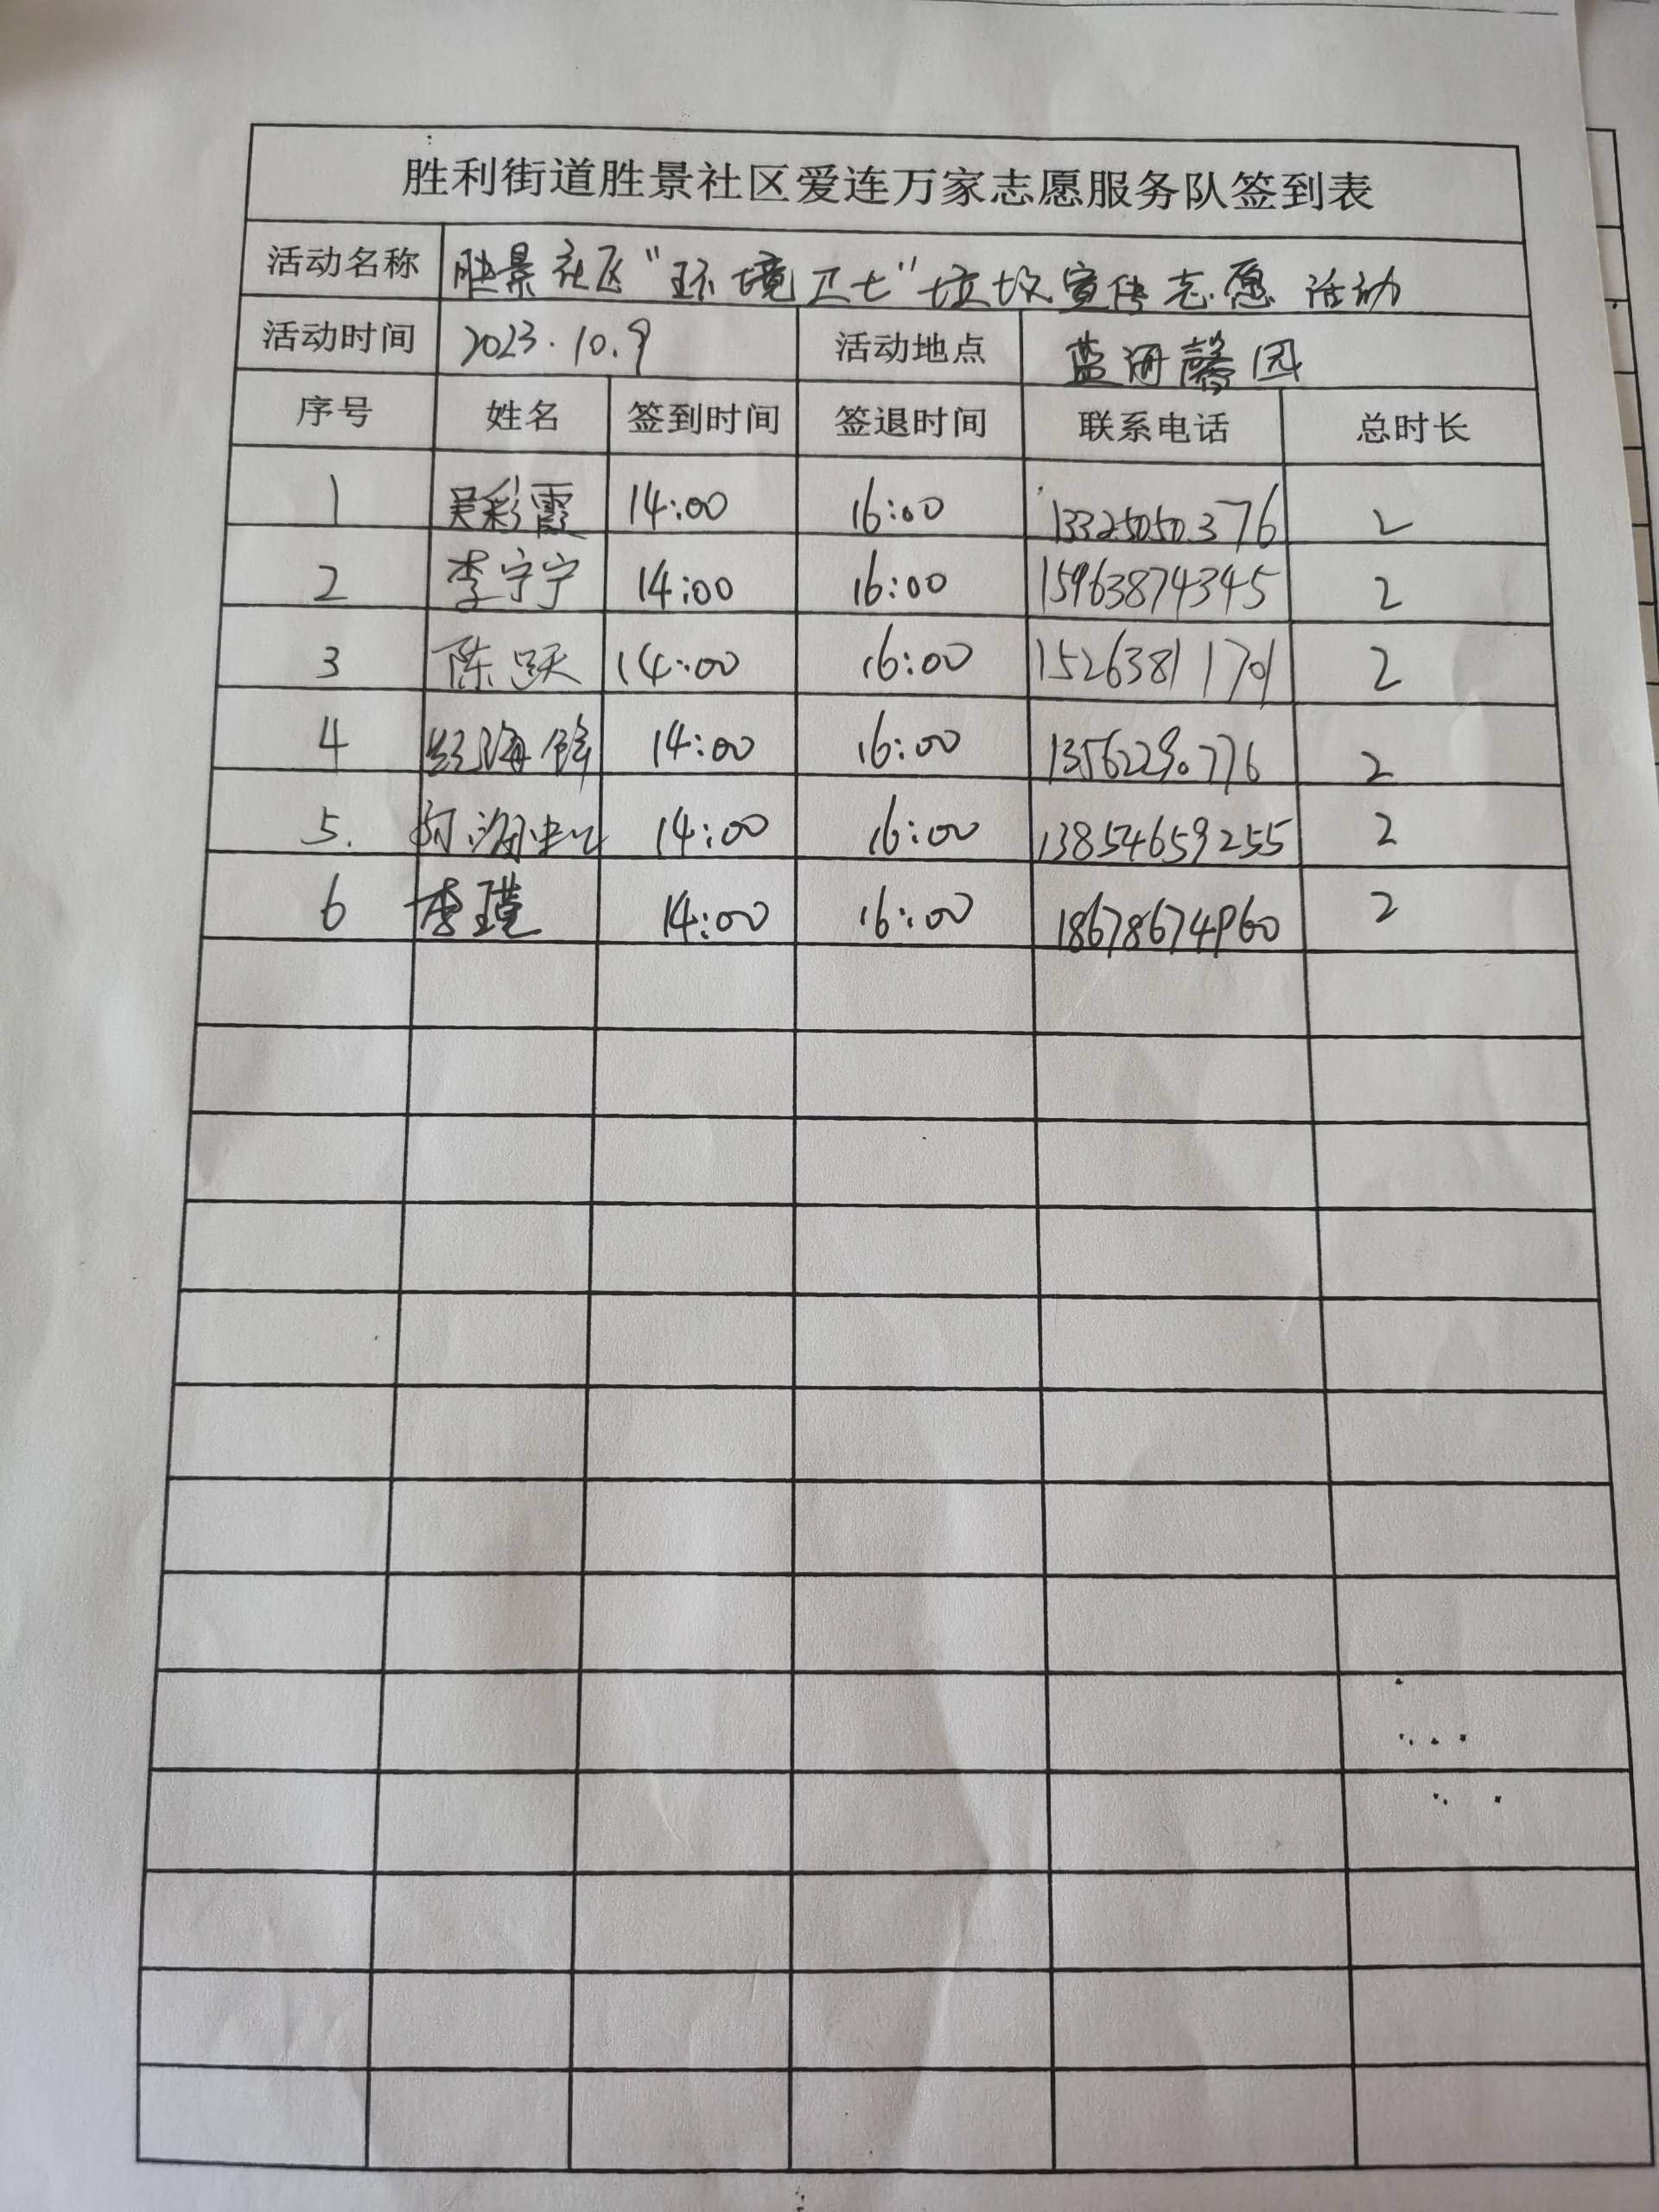 胜利街道胜景社区爱连万家志愿服务队签到表
活动名称 胜景社区“环境卫士”垃圾宣传志愿活动
活动时间 2023.10.9 活动地点 蓝海馨园
序号 姓名 签到时间 签退时间 联系电话 总时长
1 吴彩霞 14:00 16:00 13325050376 2
2 李宁宁 14:00 16:00 15963874345 2
3 陈跃 14:00 16:00 15263811701 2
4 14:00 16:00 2
5. 14:00 16:00 13854659255 2
6 李 14:00 16:00 18678674960 2